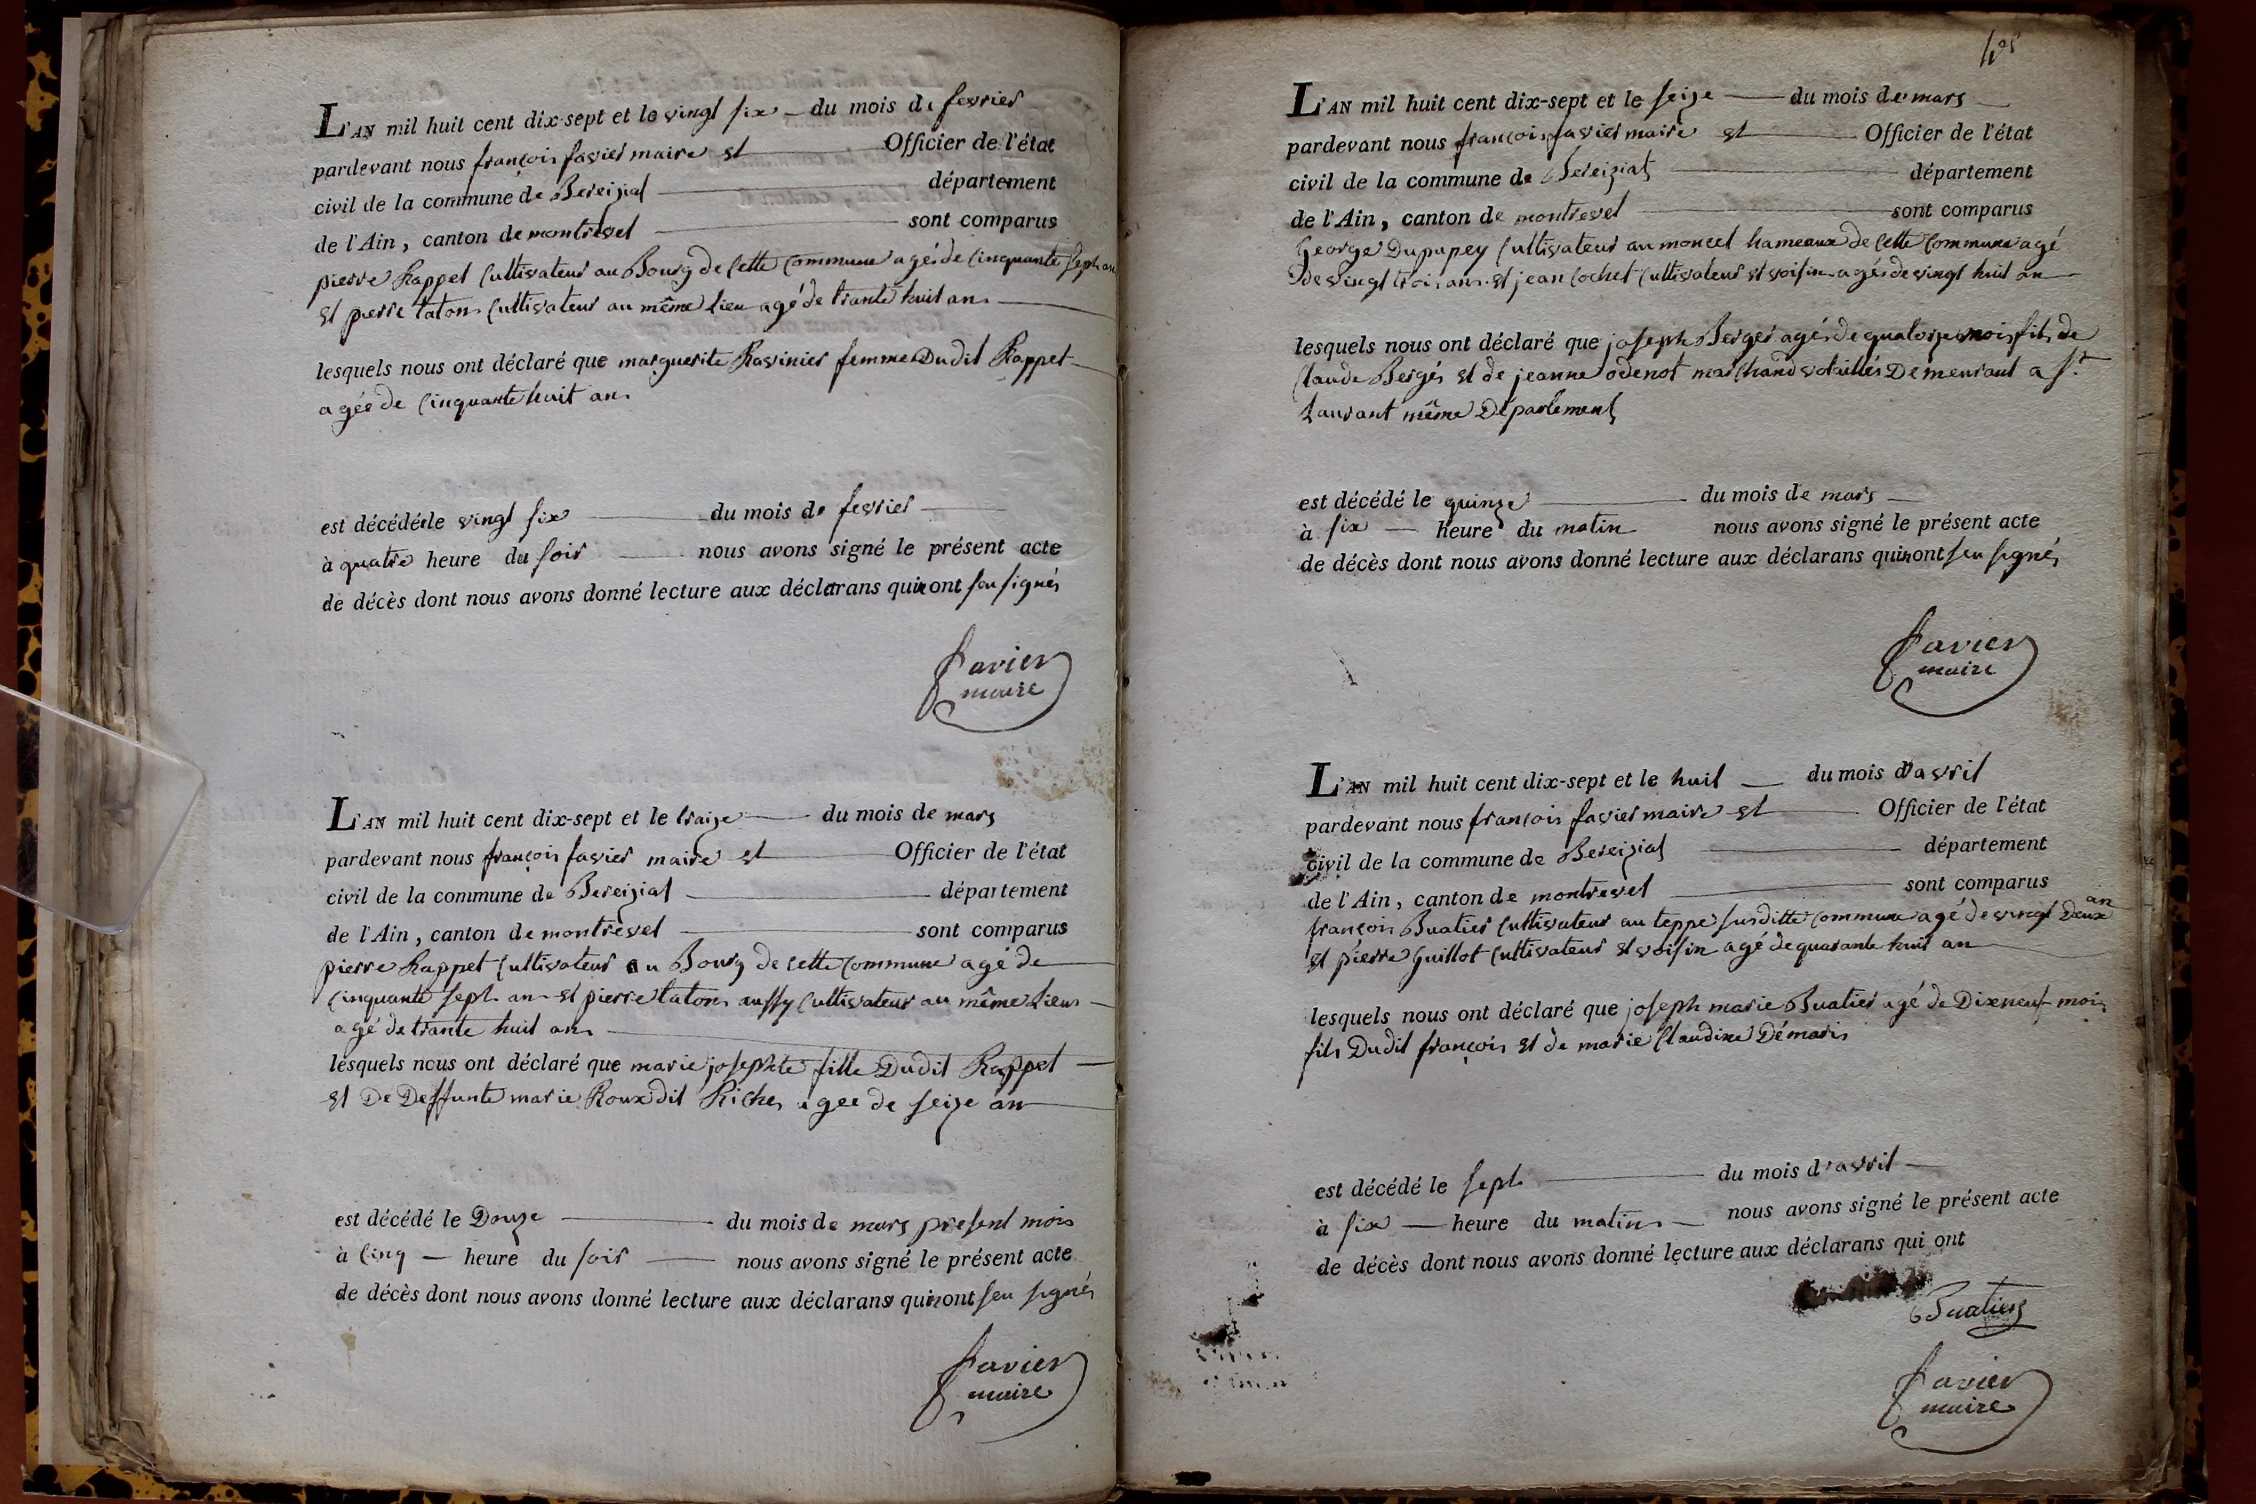 L'AN mil huit cent dix-sept et le vingt six du mois de fevrier
pardevant nous françois favier maire et Officier de l'état
civil de la commune de Bereiziat département
de l'Ain, canton de montrevel sont comparus
pierre Rappet Cultivateur au Bourg de Cette Commune agé de Cinquante sept an
et pierre taton Cultivateur au même lieu agé de trante huit an
lesquels nous ont déclaré que marguerite Ravinier femme Dudit Rappet
agée de Cinquante huit an
est décédée le vingt six du mois de fevrier
à quatre heure du soir nous avons signé le présent acte
de décès dont nous avons donné lecture aux déclarans qui nont seu signés
favier
maire
L'AN mil huit cent dix-sept et le traize du mois de mars
pardevant nous françois favier maire et Officier de l'état
civil de la commune de Bereiziat département
de l'Ain, canton de montrevel sont comparus
pierre Rappet Cultivateur au Bourg de cette Commune agé de
Cinquante sept an et pierre taton aussy Cultivateur au même Lieu
agé de trante huit an
lesquels nous ont déclaré que marie josephte fille Dudit Rappet
et De Deffunte marie Roux dit Riche agee de seize an
est décédé le Douze du mois de mars present mois
à Cinq heure du soir nous avons signé le présent acte
de décès dont nous avons donné lecture aux déclarans qui nont seu signés
favier
maire
L'AN mil huit cent dix-sept et le seize du mois de mars
pardevant nous françois favier maire et Officier de l'état
civil de la commune de Bereiziat département
de l'Ain, canton de montrevel sont comparus
George Dupupey Cultivateur au moncel hameaux de Cette Commune agé
de vingt trois ans et jean Cochet Cultivateur et voisin agé de vingt huit an
lesquels nous ont déclaré que joseph Berger agé de quatorze mois fils de
Claude Berger et de jeanne odenot marchand volaillés Demeurant a St
Laurant même Département
est décédé le quinze du mois de mars
à six heure du matin nous avons signé le présent acte
de décès dont nous avons donné lecture aux déclarans qui nont seu signés
favier
maire
L'AN mil huit cent dix-sept et le huit du mois d'avril
pardevant nous françois favier maire et Officier de l'état
civil de la commune de Bereiziat département
de l'Ain, canton de montrevel sont comparus
françois Buatier Cultivateur au teppe susditte Commune agé de vingt Deux an
et pierre Guillot Cultivateur et voisin agé de quarante huit an
lesquels nous ont déclaré que joseph marie Buatier agé de Dixneuf mois
fils Dudit françois et de marie Claudine Démaris
est décédé le sept du mois d'avril
à six heure du matin nous avons signé le présent acte
de décès dont nous avons donné lecture aux déclarans qui ont
Buatier
favier
maire